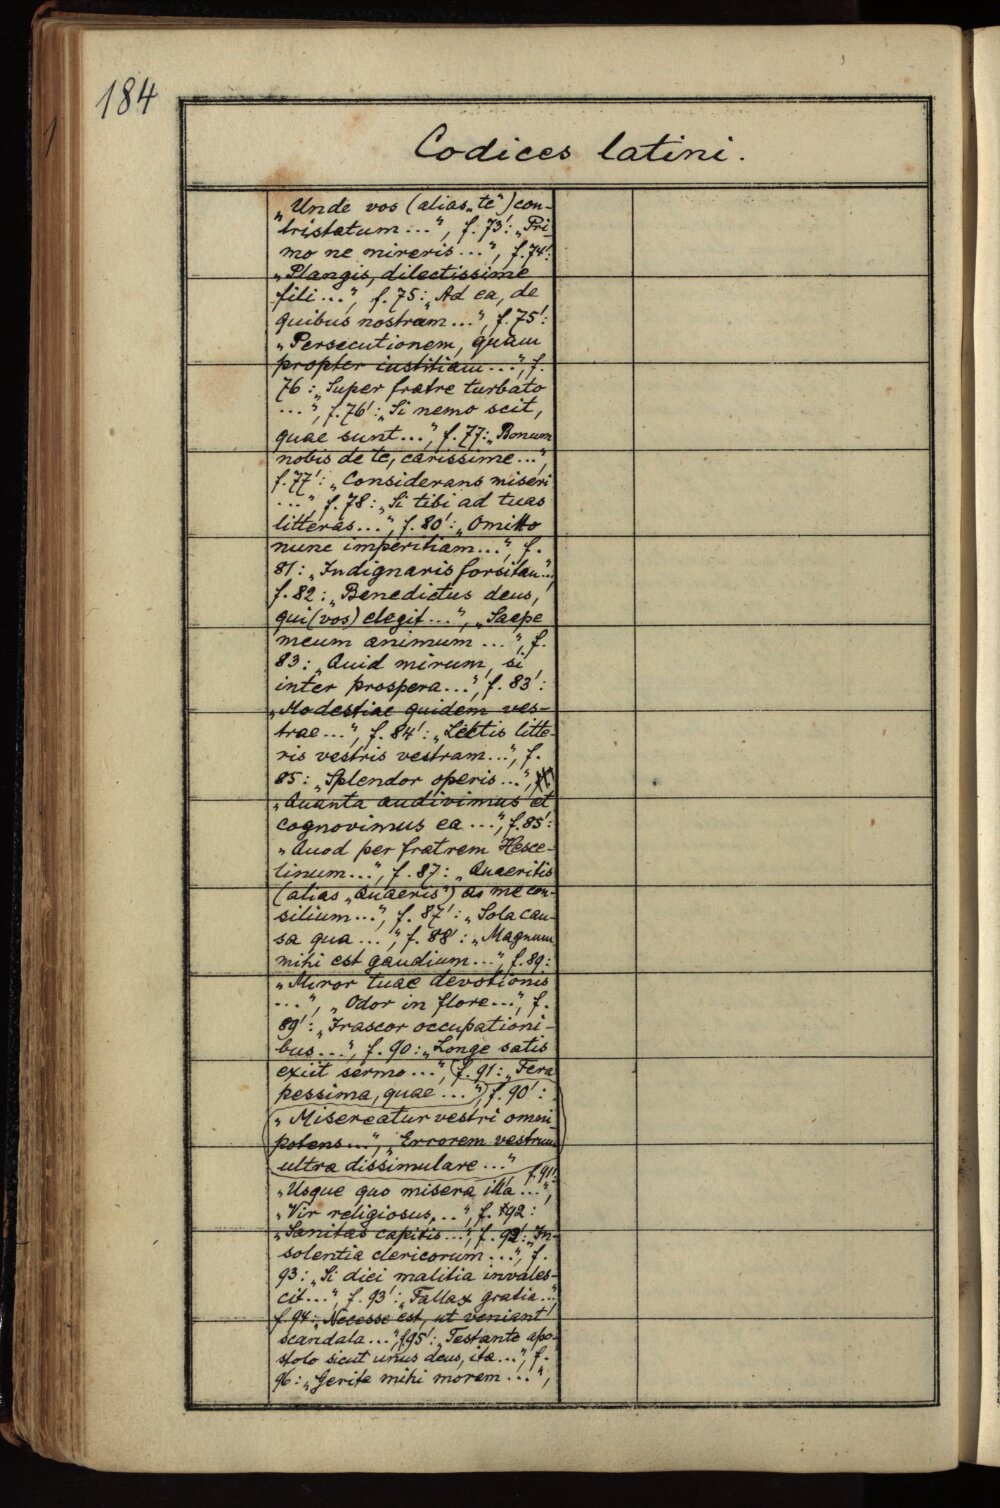 184
Codices latini.
„Unde vos (alias „te“) con-
tristatum...“, f. 73': „Pri-
mo ne mireris...“, f. 74':
„Plangis, dilectissime
fili...“, f. 75: „Ad ea, de
quibus nostram...“, f. 75':
„Persecutionem, quam
propter iustitiam...“, f.
76: „Super fratre turbato
...“, f. 76': „Si nemo scit,
quae sunt...“, f. 77: „Bonum
nobis de te, carissime...“,
f. 77': „Considerans miseri
...“, f. 78: „Si tibi ad tuas
litteras...“, f. 80': „Omitto
nunc imperitiam...“, f.
81: „Indignaris forsitan“...,
f. 82: „Benedictus deus,
qui (vos) elegit...“, „Saepe
meum animum...“, f.
83: „Quid mirum, si
inter prospera...“, f. 83':
„Modestiae quidem ves-
trae...“, f. 84': „Lectis litte-
ris vestris vestram...“, f.
85: „Splendor operis...“,
„Quanta audivimus et
cognovimus ea...“, f. 85':
„Quod per fratrem Hesce-
linum...“, f. 87: „Quaeritis
(alias „Quaeris“) a me con-
silium...“, f. 87': „Sola cau-
sa qua...“, f. 88': „Magnum
mihi est gaudium...“, f. 89:
„Miror tuae devotionis
...“, „Odor in flore...“, f.
89': „Irascor occupationi-
bus...“, f. 90: „Longe satis
exiit sermo...“, (f. 91: „Fera
pessima, quae...“,) f. 90':
„Misereatur vestri omni-
potens...“, „Errorem vestrum
ultra dissimulare...“
f. 91':
„Usque quo misera illa...“,
„Vir religiosus...“, f. 92:
„Sanitas capitis...“, f. 92': „In-
solentia clericorum...“, f.
93: „Si diei malitia invales-
cit...“, f. 93': „Fallax gratia...“
f. 94: „Necesse est, ut veniant
scandala...“, f 95': „Testante apo-
stolo sicut unus deus, ita...“, f.
96: „Gerite mihi morem...“,